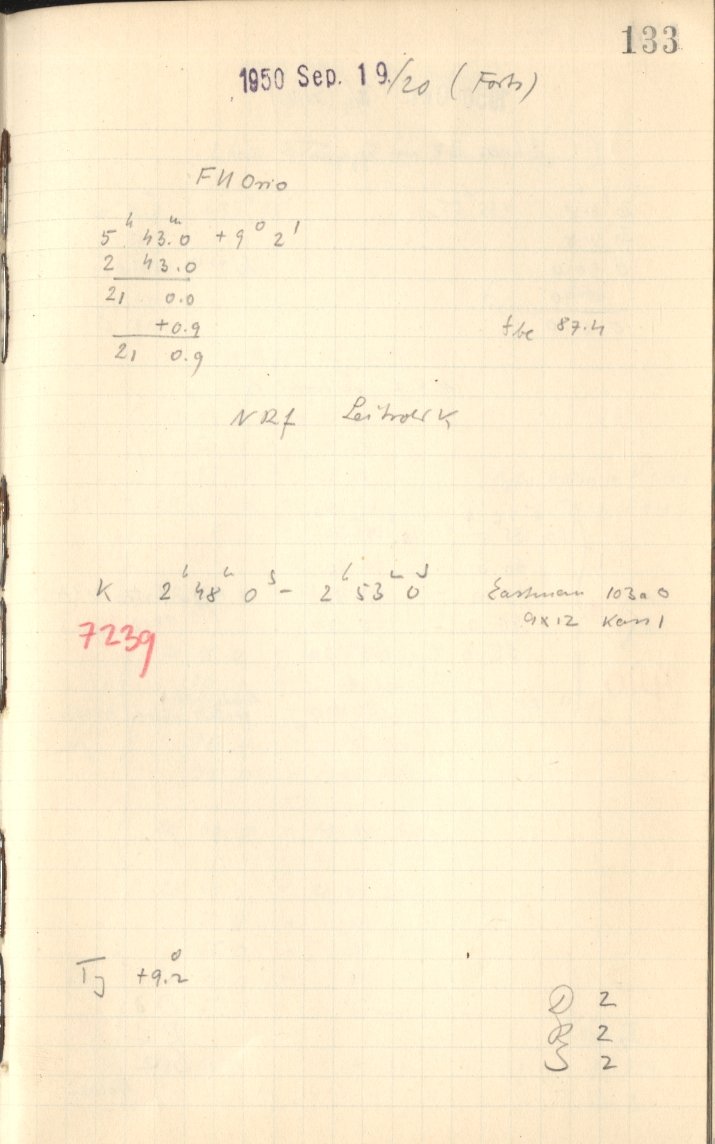 133
1950 Sep. 19./20 (Forts)
FU Orio
5h 43.0m +9° 2'
2 43.0
21 0.0
+0.9
21 0.9
fbc 87.4
NRf Leitrohr K
K 2h 48m 0s - 2h 53m 0s Eastman 103a O
9x12 Kass 1
7239
Tj +9.2°
D 2
R 2
S 2